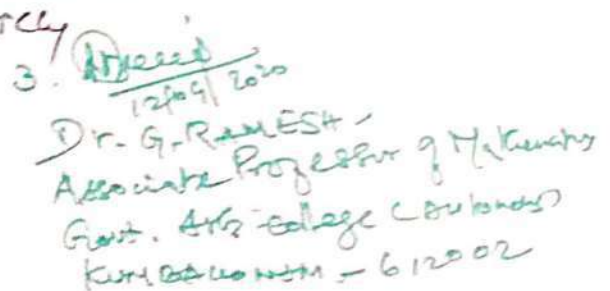 3.
12/09/2020
Dr. G. RAMESH
Associate Professor of Mathematics
Govt. Arts College (Autonomous)
KUMBAKONAM - 612002